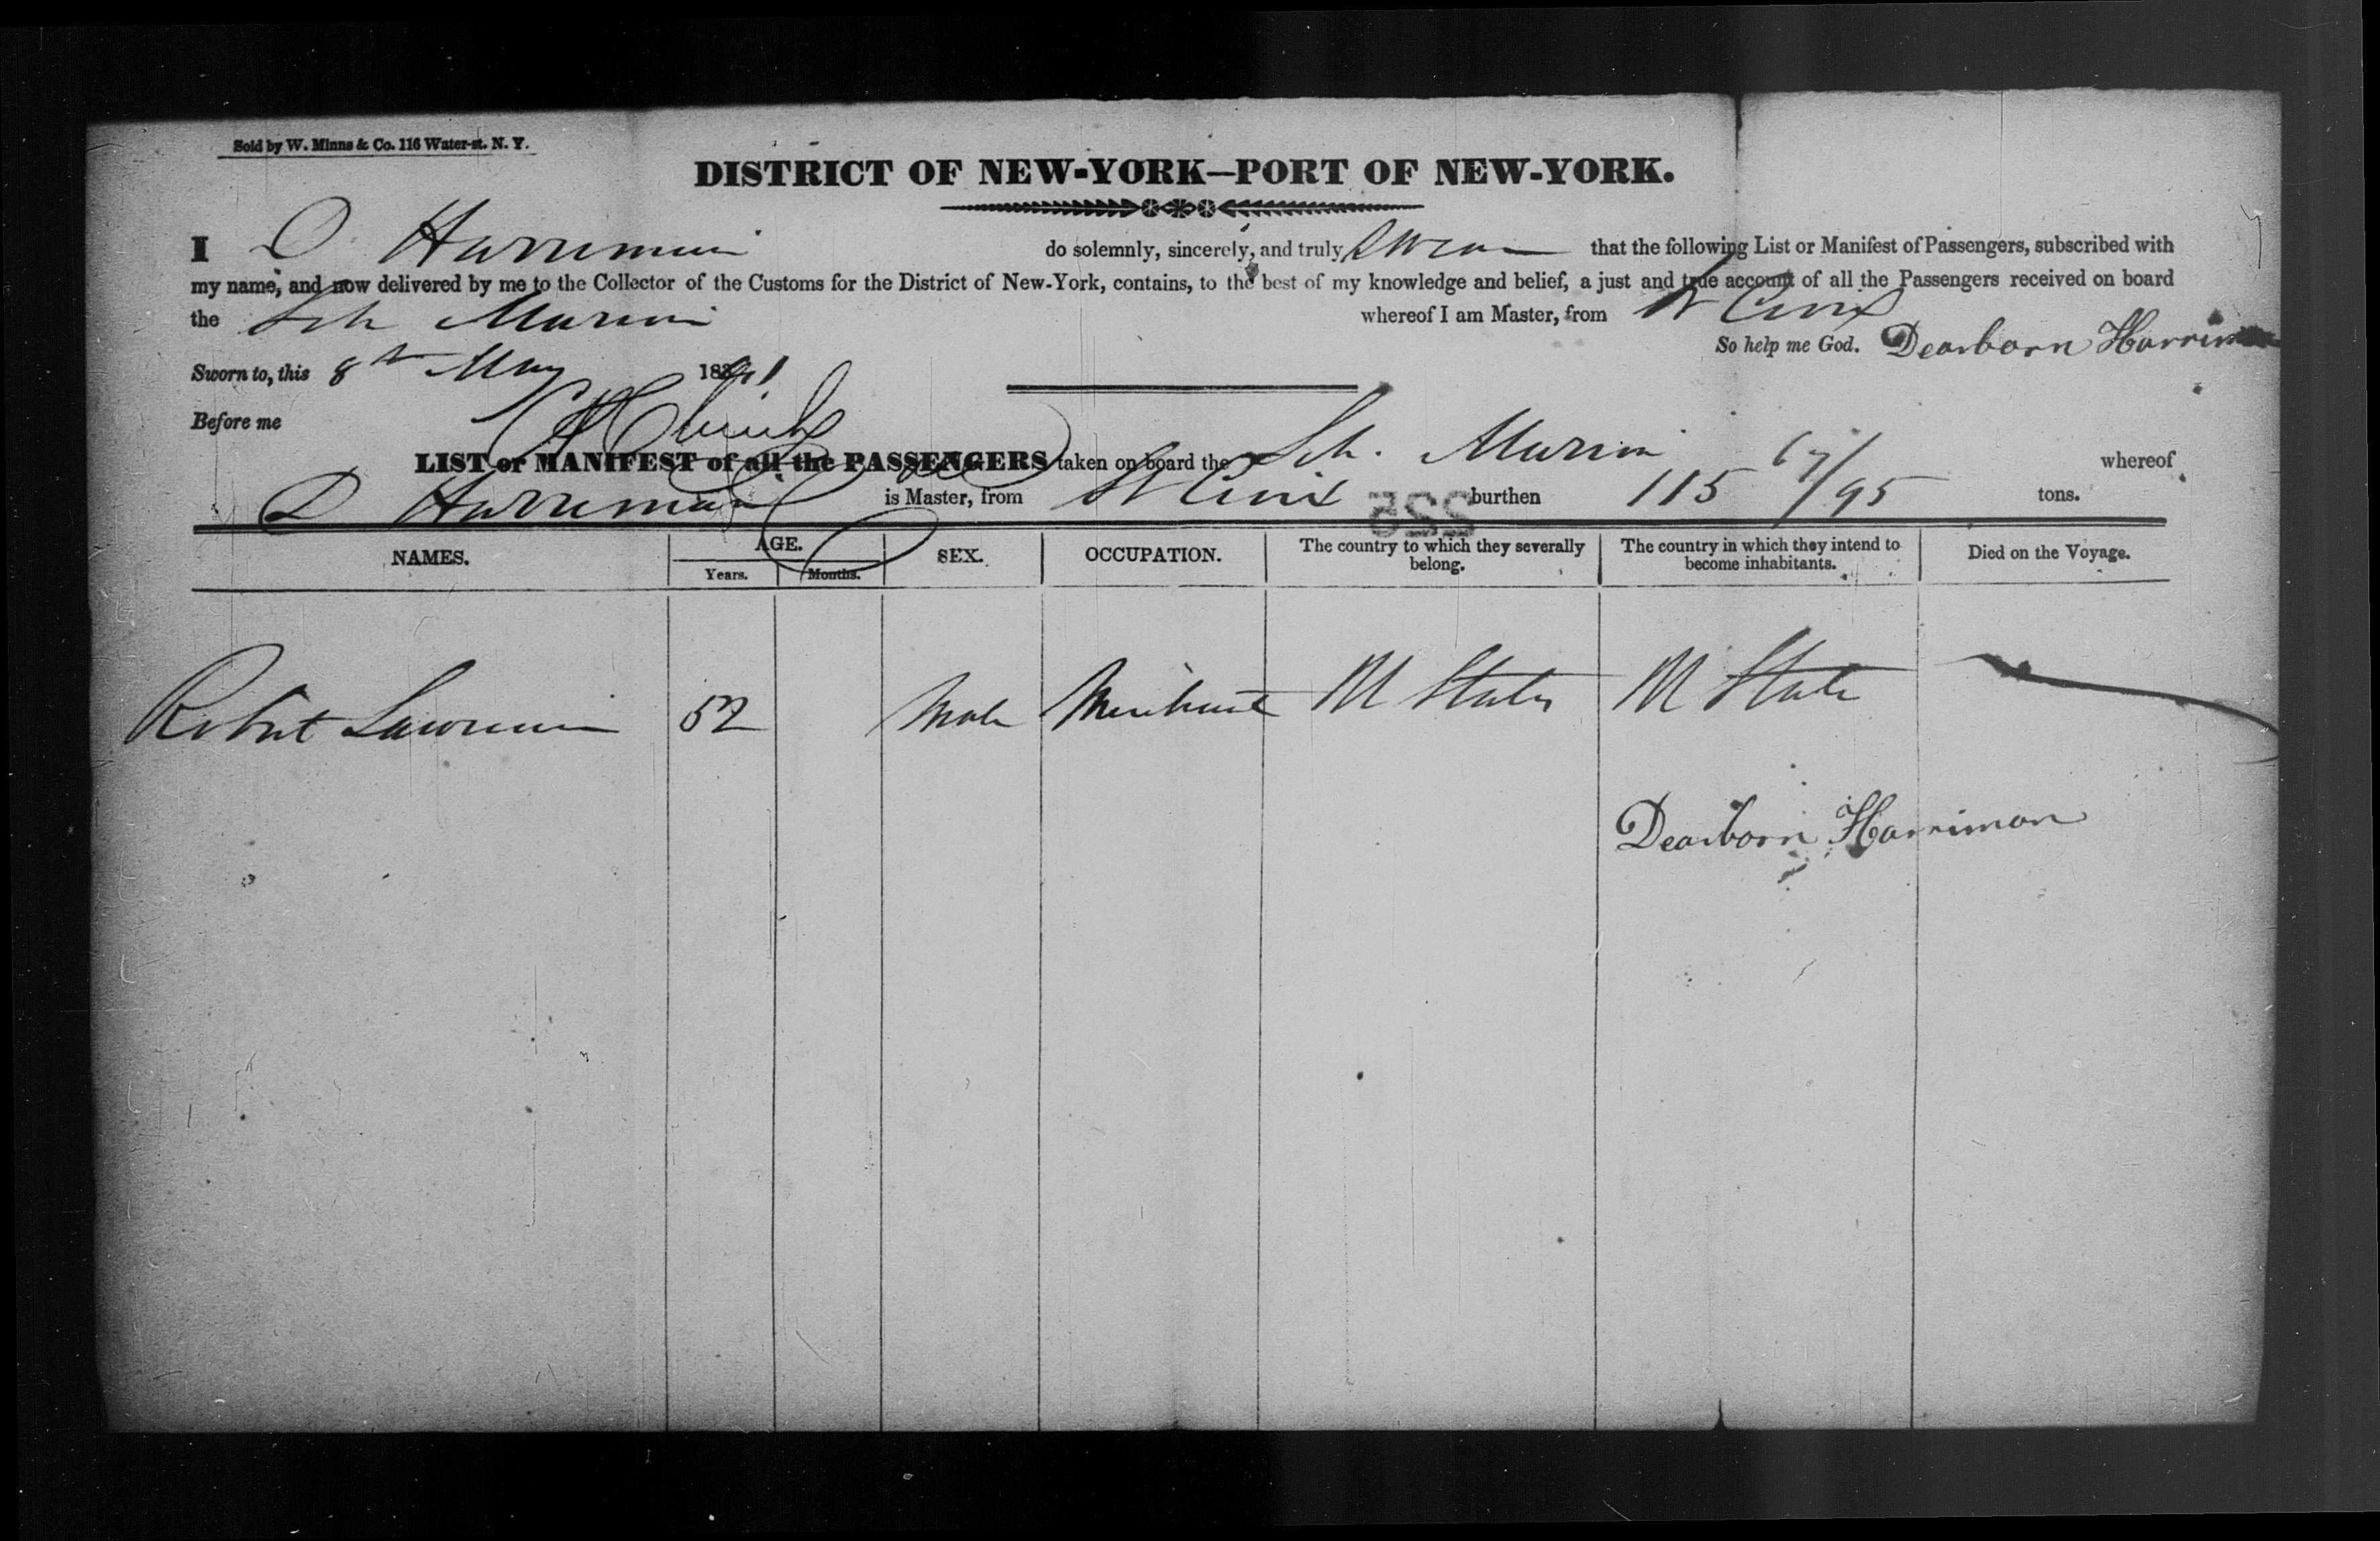 Sold by W. Minns & Co. 116 Water-st. N. Y.
DISTRICT OF NEW-YORK—PORT OF NEW-YORK.
I D. Harriman do solemnly, sincerely, and truly Swear that the following List or Manifest of Passengers, subscribed with
my name, and now delivered by me to the Collector of the Customs for the District of New-York, contains, to the best of my knowledge and belief, a just and true account of all the Passengers received on board
the Sch whereof I am Master, from St Croix
So help me God. Dearborn Harriman
Sworn to, this 8th May 1841
Before me
LIST or MANIFEST of all the PASSENGERS taken on board the Sch. whereof
D Harriman is Master, from St Croix burthen 115 67/95 tons.
225
NAMES. AGE. SEX. OCCUPATION. The country to which they severally belong. The country in which they intend to become inhabitants. Died on the Voyage.
Years. Months.
Robert Lawrence 52 Male Merchant U States U State
Dearborn Harriman